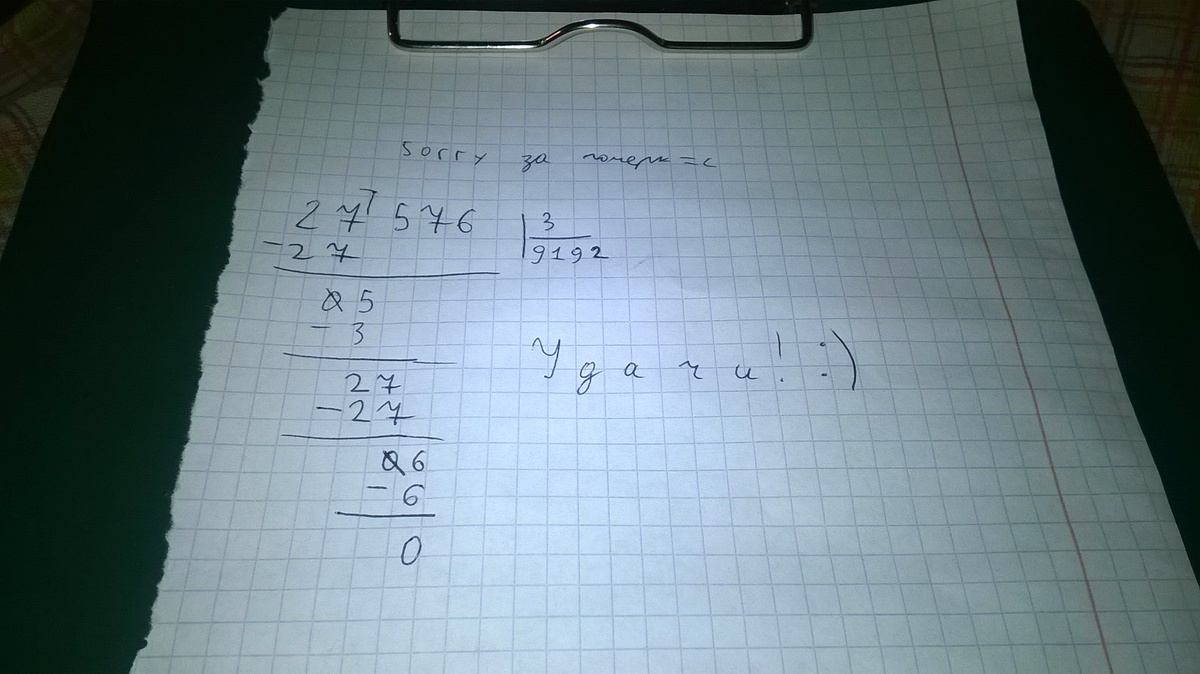 sorry за почерк =с
27 576 | 3
-27 | 9192
05
-3
27
-27
06
-6
0
Удачи! :)